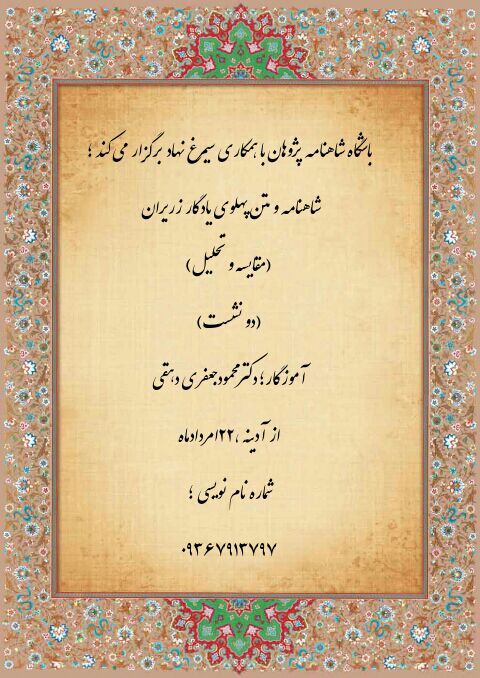 باشگاه شاهنامه پژوهان با همکاری سیمرغ نهاد برگزار می‌کند ؛
شاهنامه و متن پهلوی یادگار زریران
(مقایسه و تحلیل)
(دو نشست)
آموزگار؛ دکتر محمود جعفری دهقی
از آدینه ،۲۲امردادماه
شماره نام نویسی ؛
۰۹۳۶۷۹۱۳۷۹۷